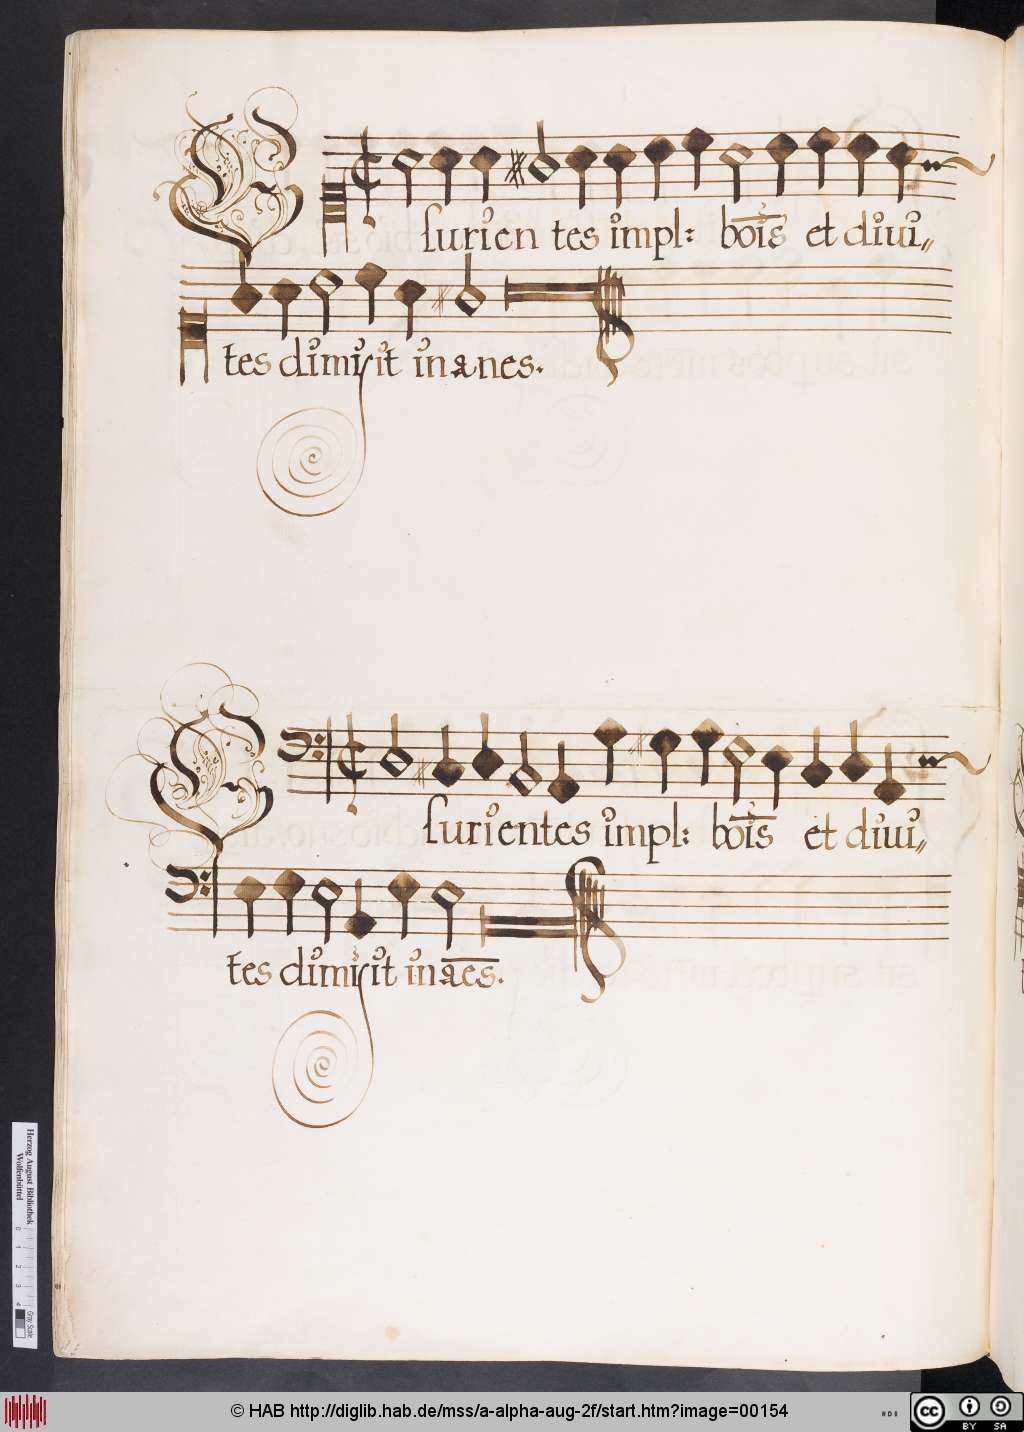 Esurien tes impl: bōis et divi„
tes dimisit inanes.
Esurientes impl: bōis et divi„
tes dimisit ināes.
Herzog August Bibliothek
Wolfenbüttel
0 1 2 3 4
Gray Scale
© HAB http://diglib.hab.de/mss/a-alpha-aug-2f/start.htm?image=00154
cc BY SA